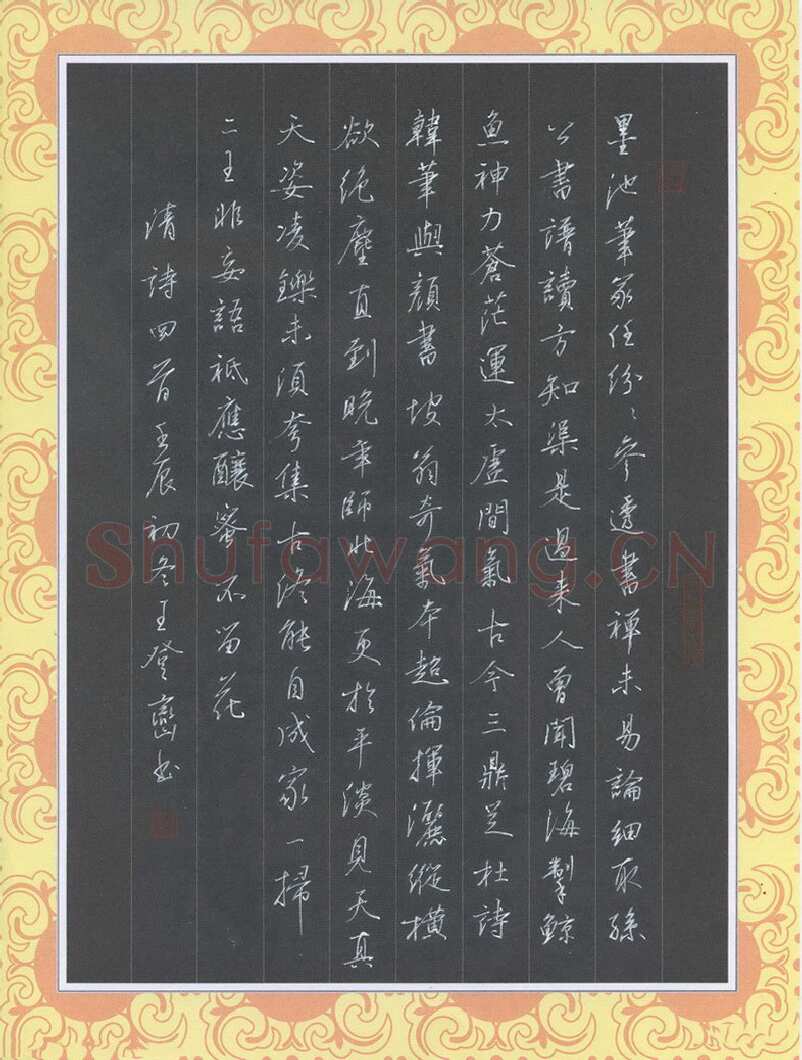 墨池筆冢任紛々參透書禪未易論細取孫
公書譜讀方知渠是過來人曾聞碧海掣鯨
魚神力蒼茫運太虛間氣古今三鼎足杜詩
韓筆與顏書坡翁奇氣本超倫揮灑縱橫
欲絕塵直到晚年師北海更於平淡見天真
天姿凌鑠未須夸集古終能自成家一掃
二王非妄語祗應釀蜜不留花
清詩四首壬辰初冬王登峦书
Shufawang.CN